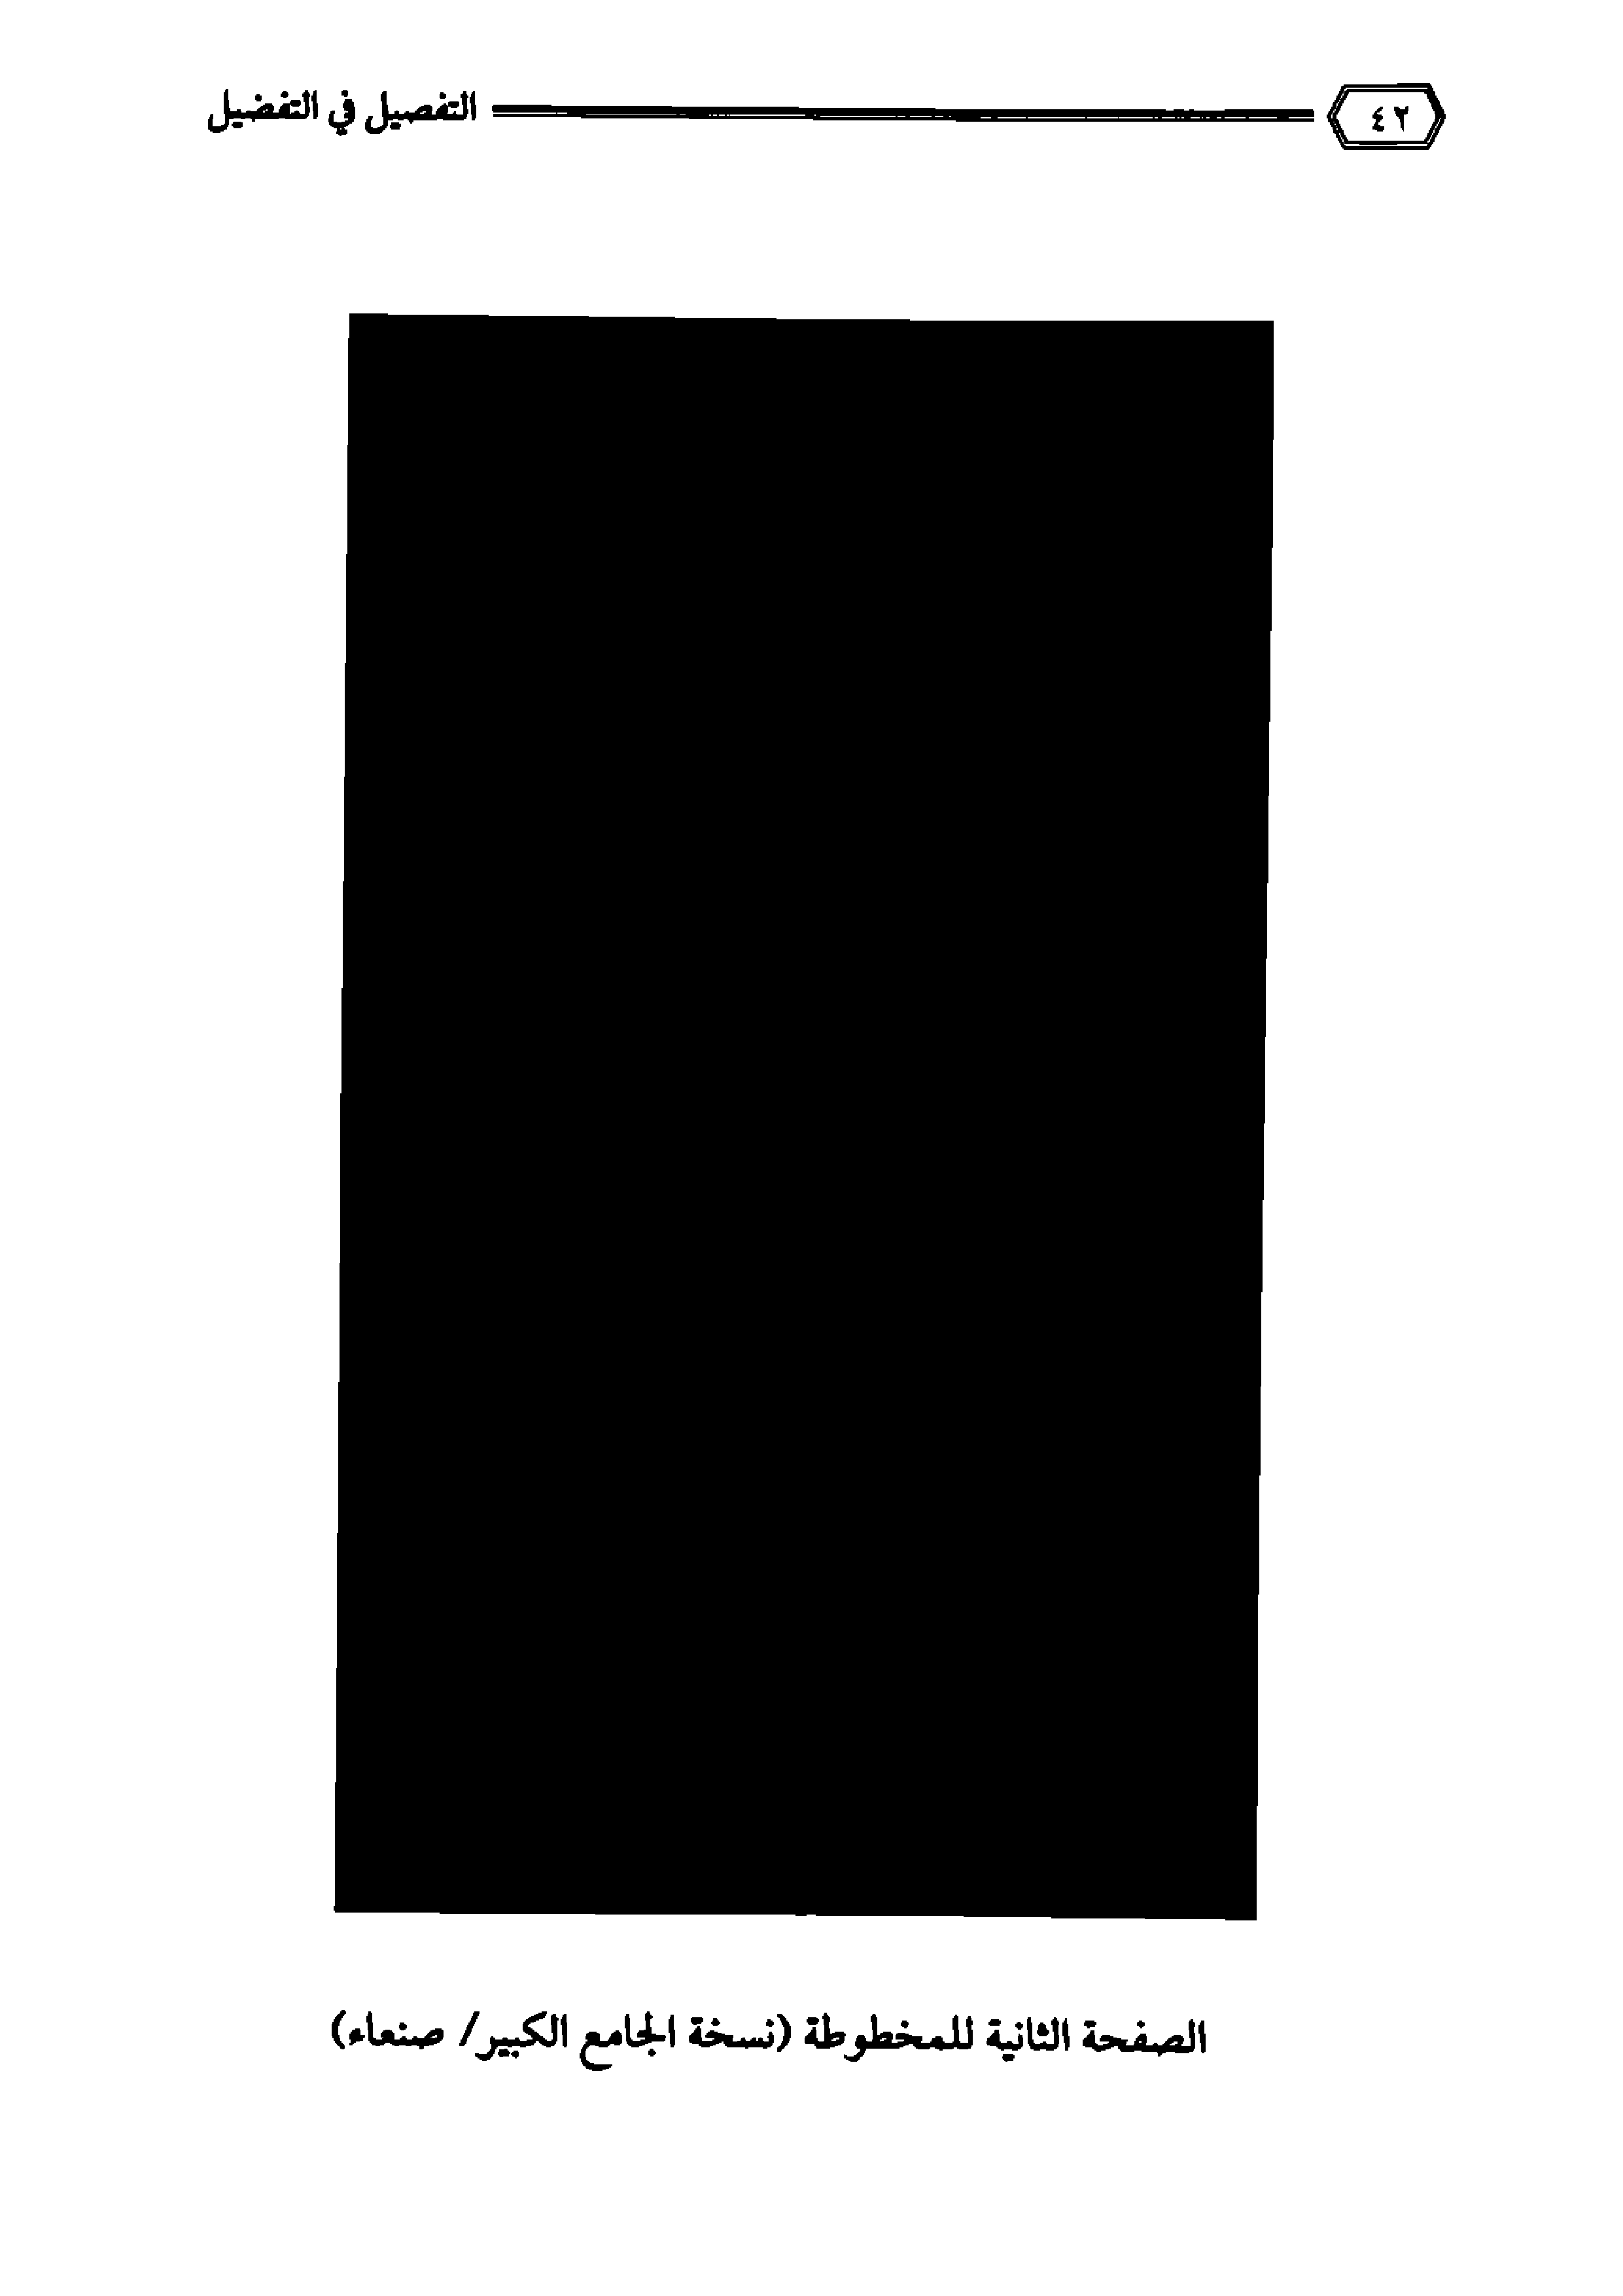 ٤٢ التفصيل في التفضيل
الصفحة الثانية للمخطوطة (نسخة الجامع الكبير/ صنعاء)